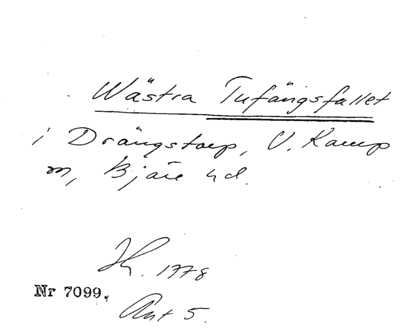 Wästra Tufängsfallet
i Drängstorp, V. Karup
m, Bjäre hd.
H. 1778
Nr 7099.
Akt 5.